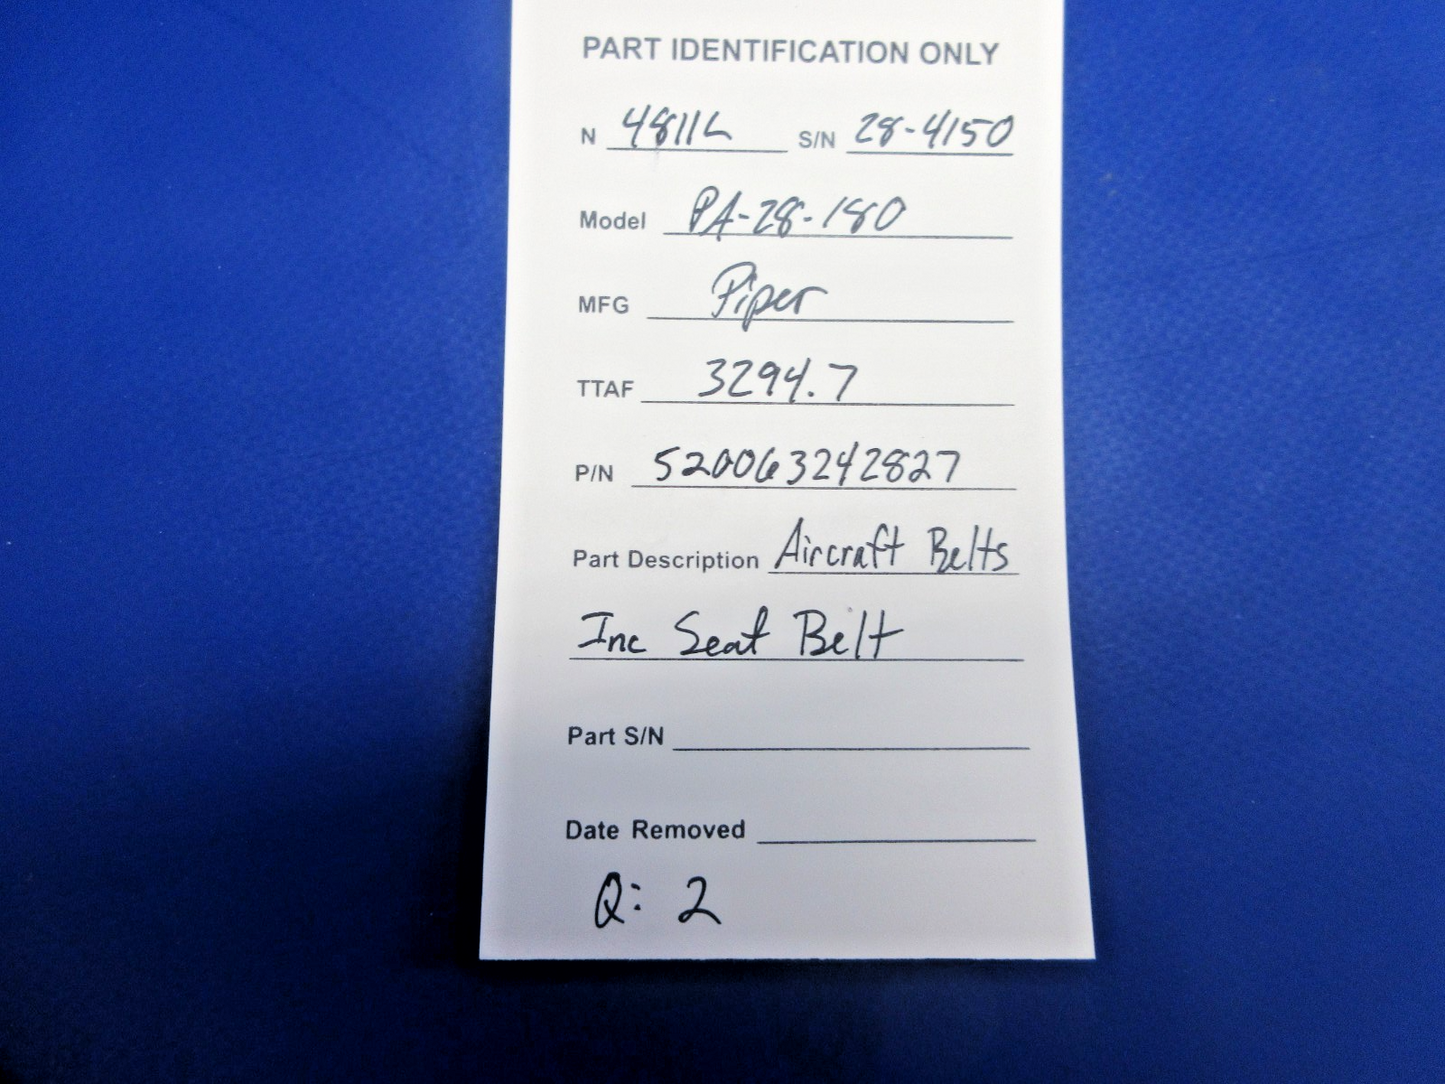 PART IDENTIFICATION ONLY
N 4811L S/N 28-4150
Model PA-28-180
MFG Piper
TTAF 3294.7
P/N 520063242827
Part Description Aircraft Belts
Inc Seat Belt
Part S/N
Date Removed
Q: 2